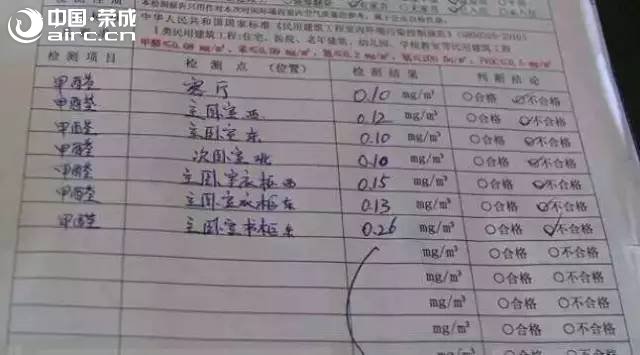 中国·荣成
airc.cn
中华人民共和国国家标准《民用建筑工程室内环境污染控制规范》(GB50325-2010)
I类民用建筑工程:住宅、医院、老年建筑、幼儿园、学校教室等民用建筑工程
甲醛≤0.08 mg/m³, 苯≤0.09 mg/m³, 氨≤0.2 mg/m³,
检测项目 检测点(位置) 检测结果 判测结论
甲醛 客厅 0.10 mg/m³ ○合格 ○不合格
甲醛 主卧室西 0.12 mg/m³ ○合格 ○不合格
甲醛 主卧室东 0.10 mg/m³ ○合格 ○不合格
甲醛 次卧室北 0.10 mg/m³ ○合格 ○不合格
甲醛 主卧室衣柜西 0.15 mg/m³ ○合格 ○不合格
甲醛 主卧室衣柜东 0.13 mg/m³ ○合格 ○不合格
甲醛 主卧室书柜东 0.26 mg/m³ ○合格 ○不合格
mg/m³ ○合格 ○不合格
mg/m³ ○合格 ○不合格
mg/m³ ○合格 ○不合格
mg/m³ ○合格 ○不合格
mg/m³ ○合格 ○不合格